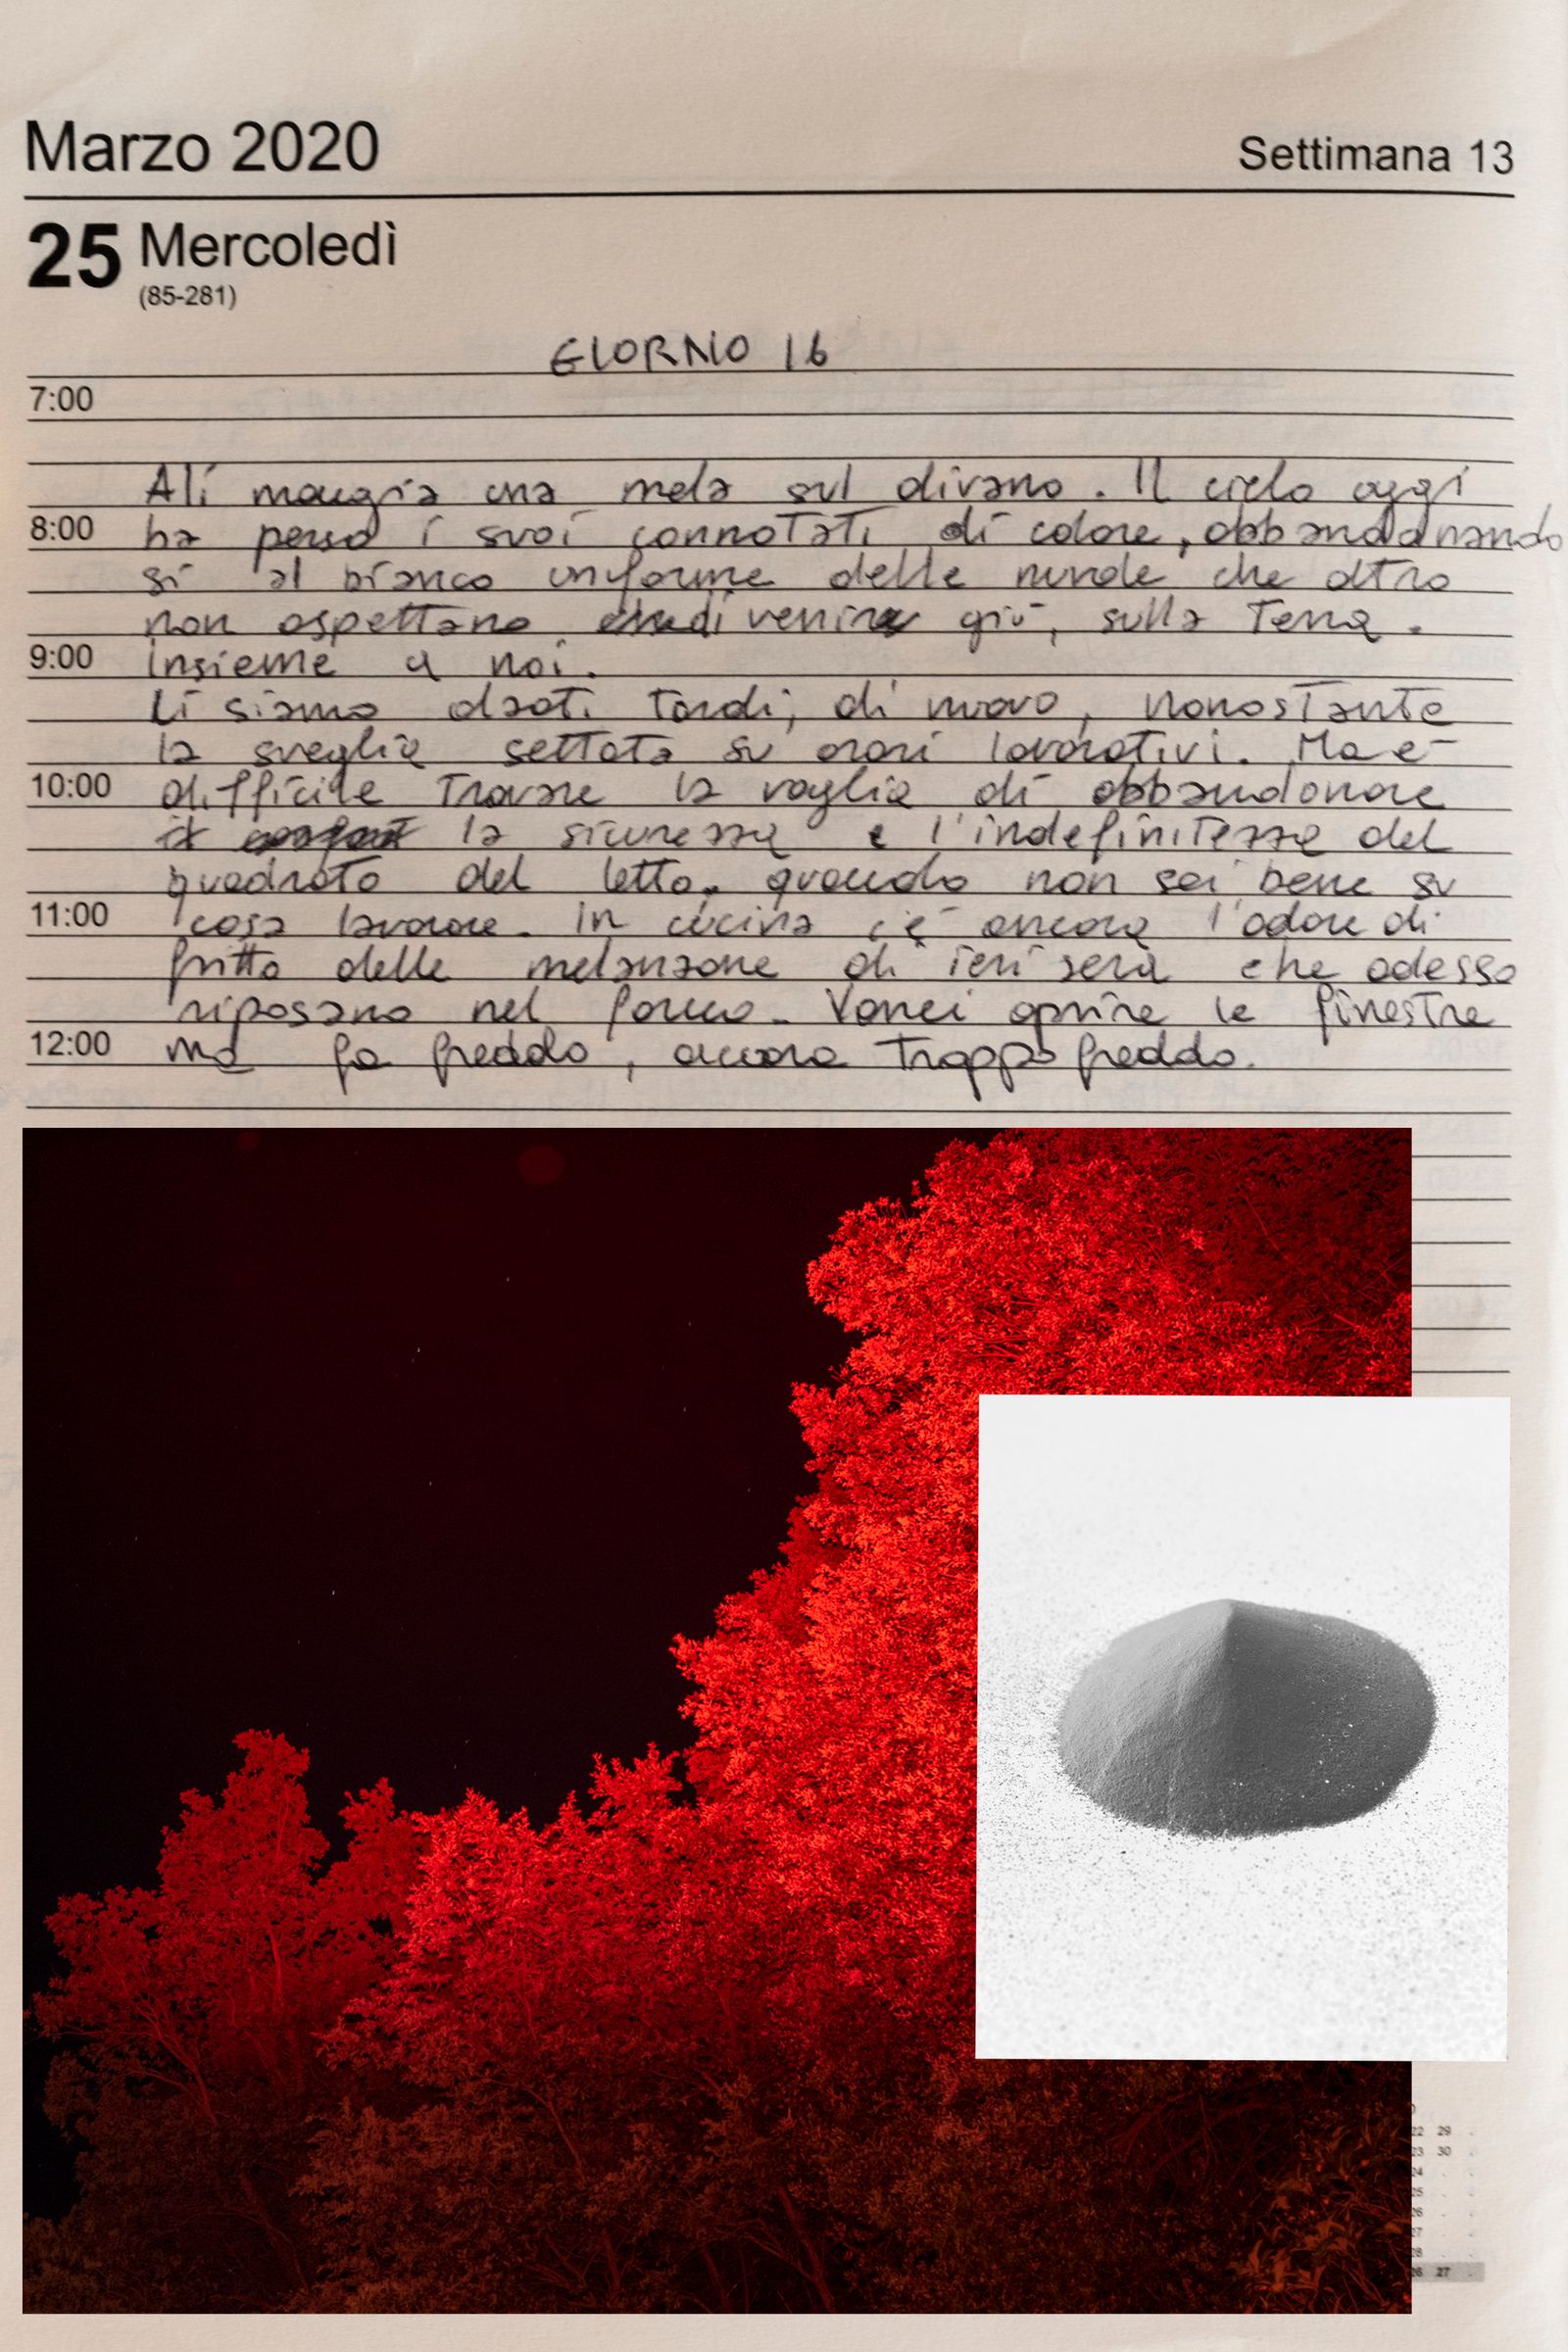 Marzo 2020
Settimana 13
25 Mercoledì
(85-281)
GIORNO 16
7:00
Ali mangia una mela sul divano. Il cielo oggi
8:00 ha perso i suoi connotati di colore, abbandonando
si al bianco uniforme delle nuvole che altro
non aspettano di venire giù, sulla Terra.
9:00 insieme a noi.
Ci siamo alzati tardi, di nuovo, nonostante
la sveglia settata su orari lavorativi. Ma è
10:00 difficile trovare la voglia di abbandonare
la sicurezza e l'indefinitezza del
quadrato del letto, quando non sai bene su
11:00 cosa lavorare. In cucina c'è ancora l'odore di
fritto delle melanzane di ieri sera che adesso
riposano nel forno. Vorrei aprire le finestre
12:00 ma fa freddo, ancora troppo freddo.
22 29
23 30
24
25
26
27
28
26 27